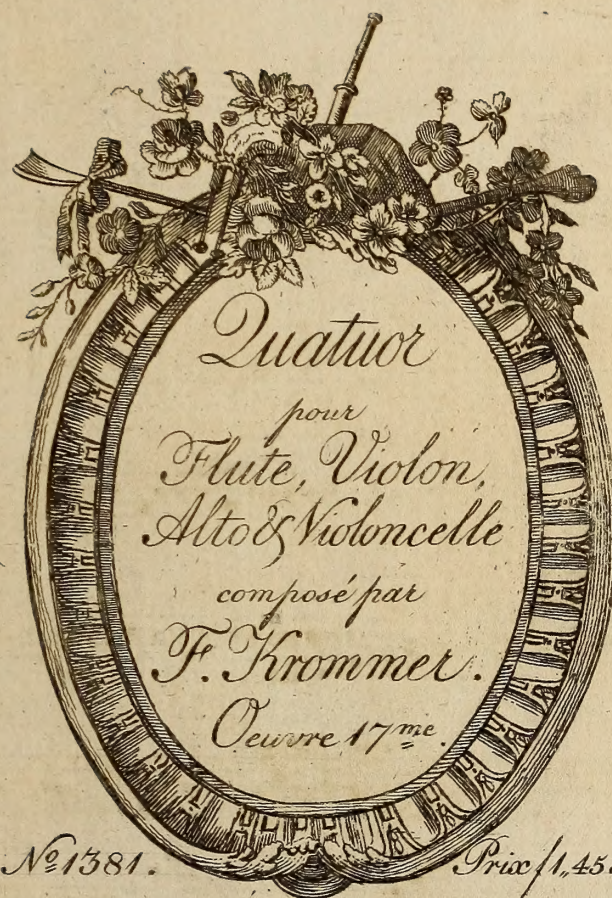 Quatuor
pour
Flute, Violon,
Alto & Violoncelle
composé par
F. Krommer.
Oeuvre 17me.
No 1381.
Prix f 1,,45.